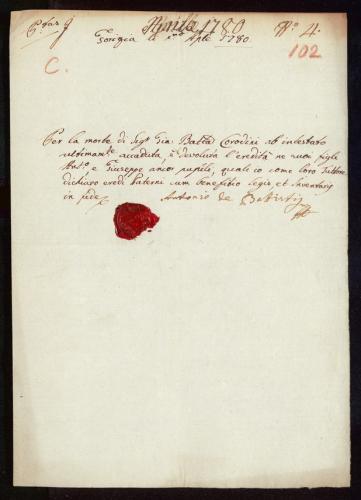 Aprile 1780
No 4.
Gorizia li Aple 1780.
102
C.
Per la morte di Sigr Gia Batta Corodini ab intestato
ultimamte accaduta, è devoluta l'eredità ne suoi figli
Anto e Giuseppe anco pupilli, quali io come loro Tuttore
dichiaro eredi paterni cum beneficio legis et inventarij
in fede Antonio de